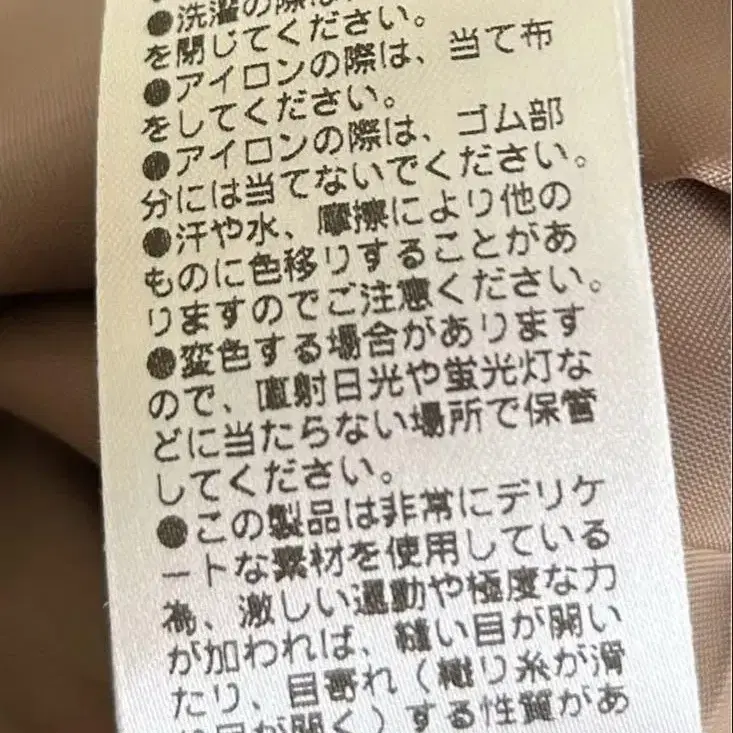 ●洗濯の際は
を閉じてください。
●アイロンの際は、当て布
をしてください。
●アイロンの際は、ゴム部
分には当てないでください。
●汗や水、摩擦により他の
ものに色移りすることがあ
りますのでご注意ください。
●変色する場合があります
ので、直射日光や蛍光灯な
どに当たらない場所で保管
してください。
●この製品は非常にデリケ
ートな素材を使用している
為、激しい運動や極度な力
が加われば、縫い目が開い
たり、目寄れ（織り糸が滑
り目が開く）する性質があ